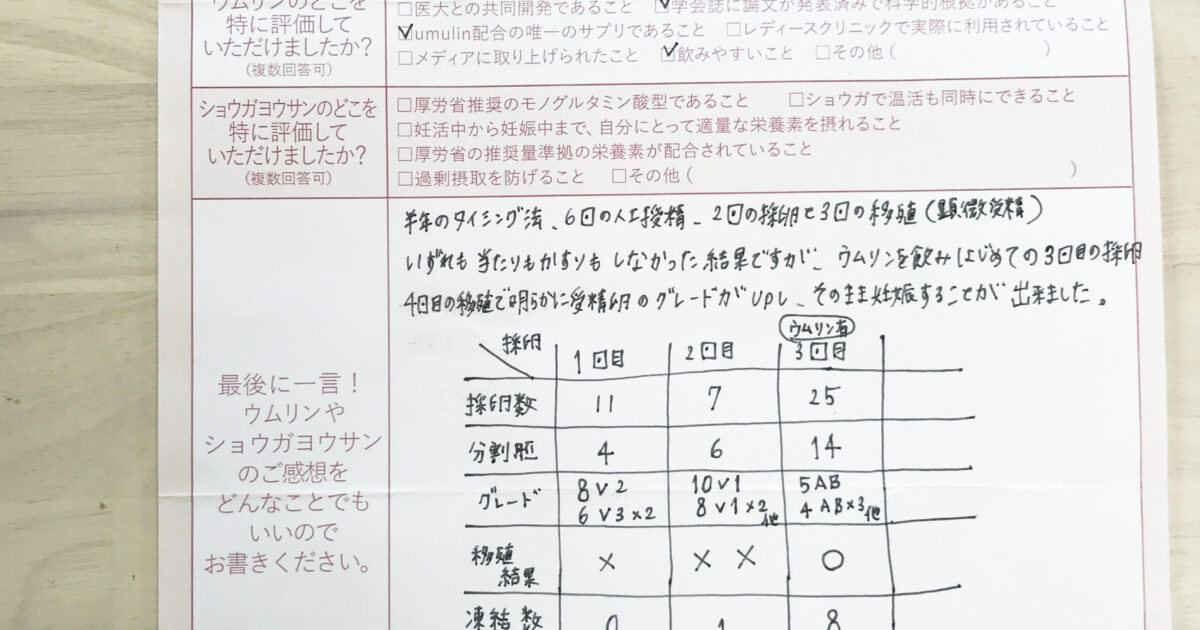 ウムリンのどこを
特に評価して
いただけましたか?
(複数回答可)
□医大との共同開発であること ☑学会誌に論文が発表済みで科学的根拠があること
☑umulin配合の唯一のサプリであること □レディースクリニックで実際に利用されていること
□メディアに取り上げられたこと ☑飲みやすいこと □その他( )
ショウガヨウサンのどこを
特に評価して
いただけましたか?
(複数回答可)
□厚労省推奨のモノグルタミン酸型であること □ショウガで温活も同時にできること
□妊活中から妊娠中まで、自分にとって適量な栄養素を摂れること
□厚労省の推奨量準拠の栄養素が配合されていること
□過剰摂取を防げること □その他( )
最後に一言!
ウムリンや
ショウガヨウサン
のご感想を
どんなことでも
いいので
お書きください。
半年のタイミング法、6回の人工授精、2回の採卵と3回の移殖(顕微受精)
いずれも当たりもかすりもしなかった結果ですが、ウムリンを飲みはじめての3回目の採卵
4回目の移殖で明らかに受精卵のグレードがupし、そのまま妊娠することが出来ました。
ウムリン有
採卵 1回目 2回目 3回目
採卵数 11 7 25
分割胚 4 6 14
グレード 8v2 10v1 5AB
6v3×2 8v1×2他 4AB×3他
移殖結果 × × × ○
凍結数 0 1 8